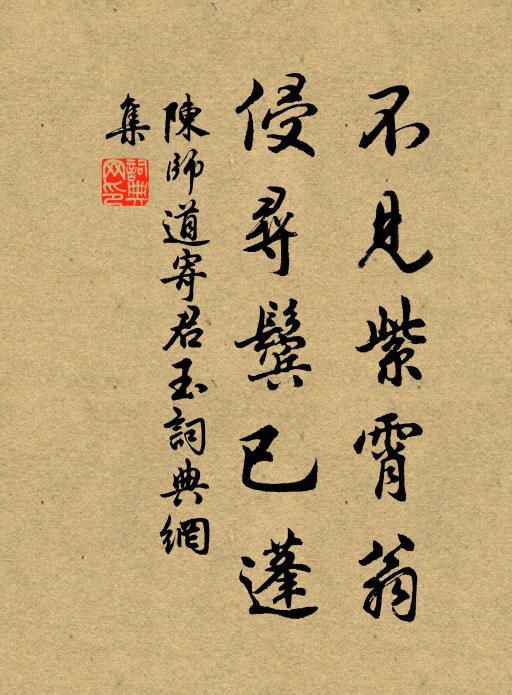 不見紫霄翁
侵尋鬢已蓬
陳師道寄君玉詞典網
集
詞典網印